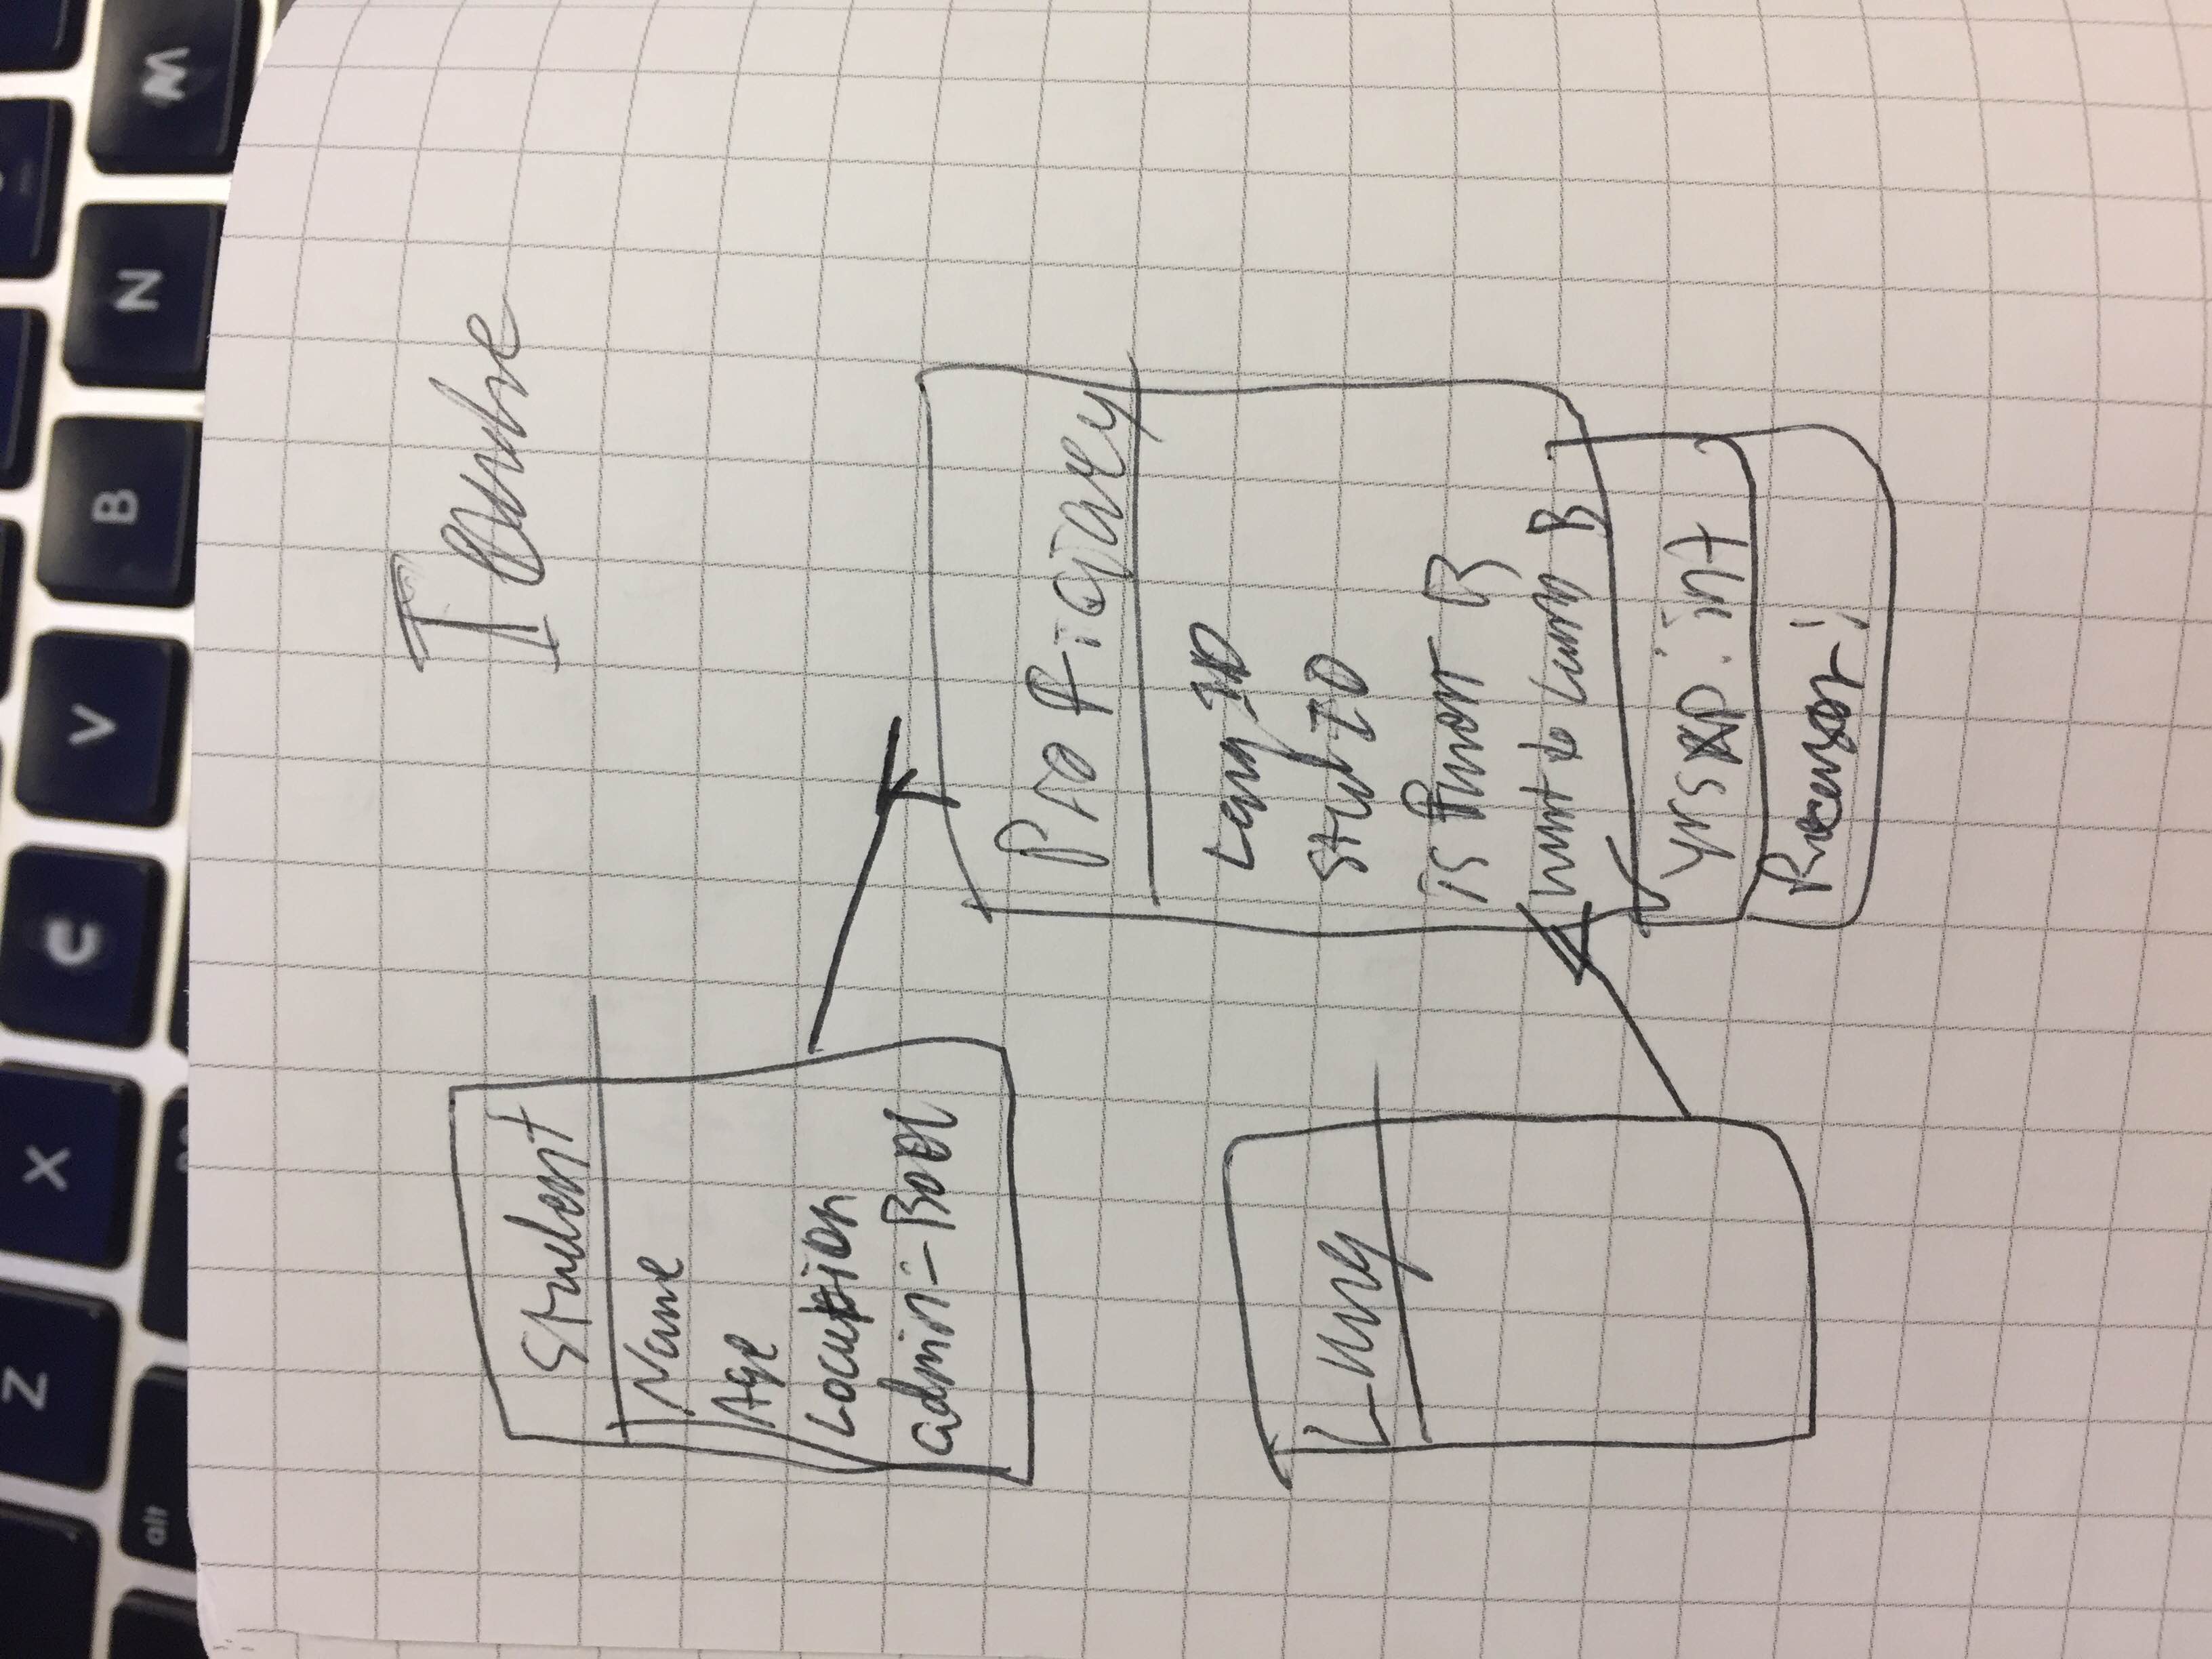 Z X C V B N M
alt
Student
Name
Age
Location
admin = Bool
Proficiency
Lang ID
Stud ID
is fluent B
want to learn B
yrsxp: int
Reason:
Lang